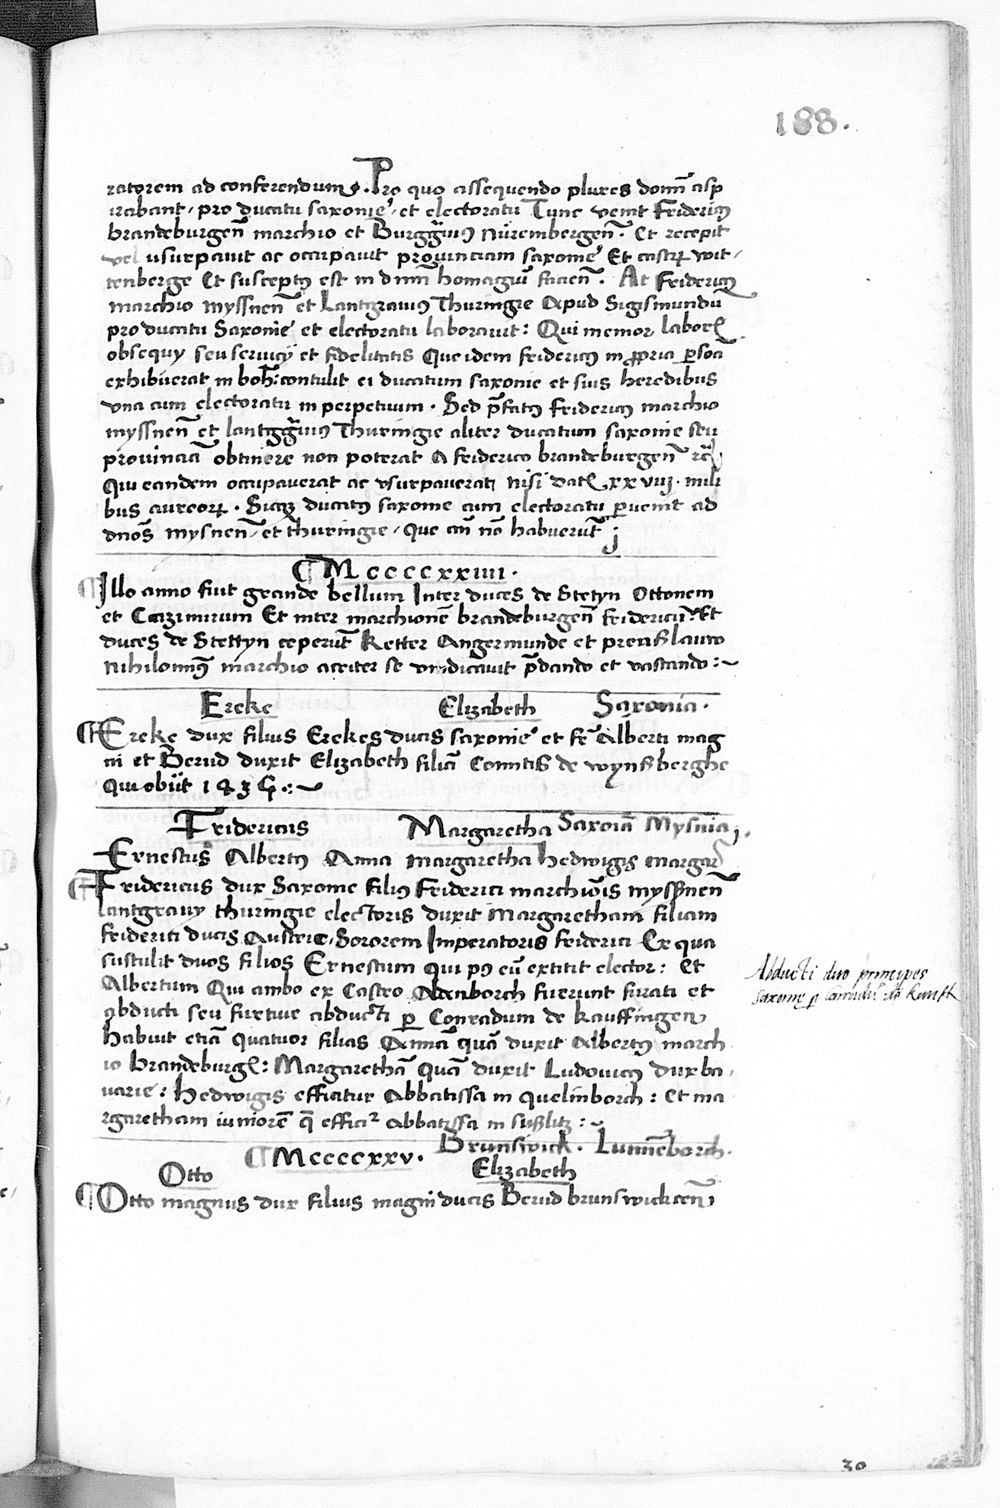 188.
ratorem ad conferendum. Pro quo assequendo plures domĩ asp
irabant, pro ducatu saxonie, et electoratu Tunc venit Fridericꝰ
brandeburgeñ marchio et Burgg̃uiꝰ nürembergeñ. Et recepit
vel usurpauit ac occupauit prouinciam saxonie Et castrũ wit-
tenberge Et susceptꝰ est in dñm homagiũ facieñ. At Fridericꝰ
marchio myssneñ et Lantgrauiꝰ Thuringie Apud Sigismundũ
pro ducatu Saxonie et electoratu laborauit: Qui memor laborũ
obsequy seu seruicij et fidelitatis Que idem fridericꝰ in ꝓpria ꝑsoã
exhibuerat in boh: contulit ei ducatum saxonie et suis heredibus
vna cum electoratu in perpetuum. Sed p̃fatꝰ Fridericꝰ marchio
myssneñ et lantgg̃uiꝰ Thuringie aliter ducatum saxonie seu
prouinciã obtinere non poterat A friderico brandeburgeñ
Qui eandem occupauerat ac vsurpauerat nisi datꝭ xxviij mili
bus aureorꝝ. Sicqꝫ ducatꝰ saxonie cum electoratu ꝑuenit ad
dnõs mysneñ et thuringie, Que añ nõ habuerũt j
¶ Mccccxxiiii.
¶ Illo anno fuit grande bellum Inter duces de Stetyn Ottonem
et Cazimirum Et inter marchionẽ brandeburgeñ fridericũ Et
duces de Stettyn ceperũt Ketter Angermunde et prenßlauw
nihilominꝰ marchio acriter se vindicauit p̃dando et vastando:~
Ereke Elizabeth Saxonia.
¶ Ereke dux filius Erekes ducis saxonie et fr̃ Alberti mag
ni et Bernd duxit Elizabeth filiã Comitis de wynßberghe
Qui obiit 1436.:~
Fridericus Margaretha Saxoiã Mysniã j.
Ernestus Albertꝰ Anna margaretha hedwigis margar
¶ Fridericus dux Saxonie filiꝰ Friderici marchiõis myssneñ
lantgrauy thuringie electoris duxit Margaretham filiam
friderici ducis Austrie, Sororem Imperatoris friderici Ex qua
sustulit duos filios Ernestum qui pꝰ eũ extitit elector: Et
Albertum Qui ambo ex Castro Aldenborch fuerunt furati et
abducti seu furtiue abducti ꝑ Conradum de kauffingen
Habuit etiã quatuor filias Annã quã duxit Albertꝰ march
io brandeburgꝭ: Margarethã Quã duxit Ludouicꝰ dux ba-
uarie: Hedwigis efficitur Abbatissa in quelinborch: Et ma
rgaretham iuniorẽ q̃ efficiᷣ abbatissa in sußlitz:~
Abducti duo principes
saxonie ꝑ Conradũ dẽ kauff
Brunswick. Lunneborch.
¶ Mccccxxv.
Otto Elizabeth
¶ Otto magnus dux filius magni ducis Bernd brunswickceñ
30